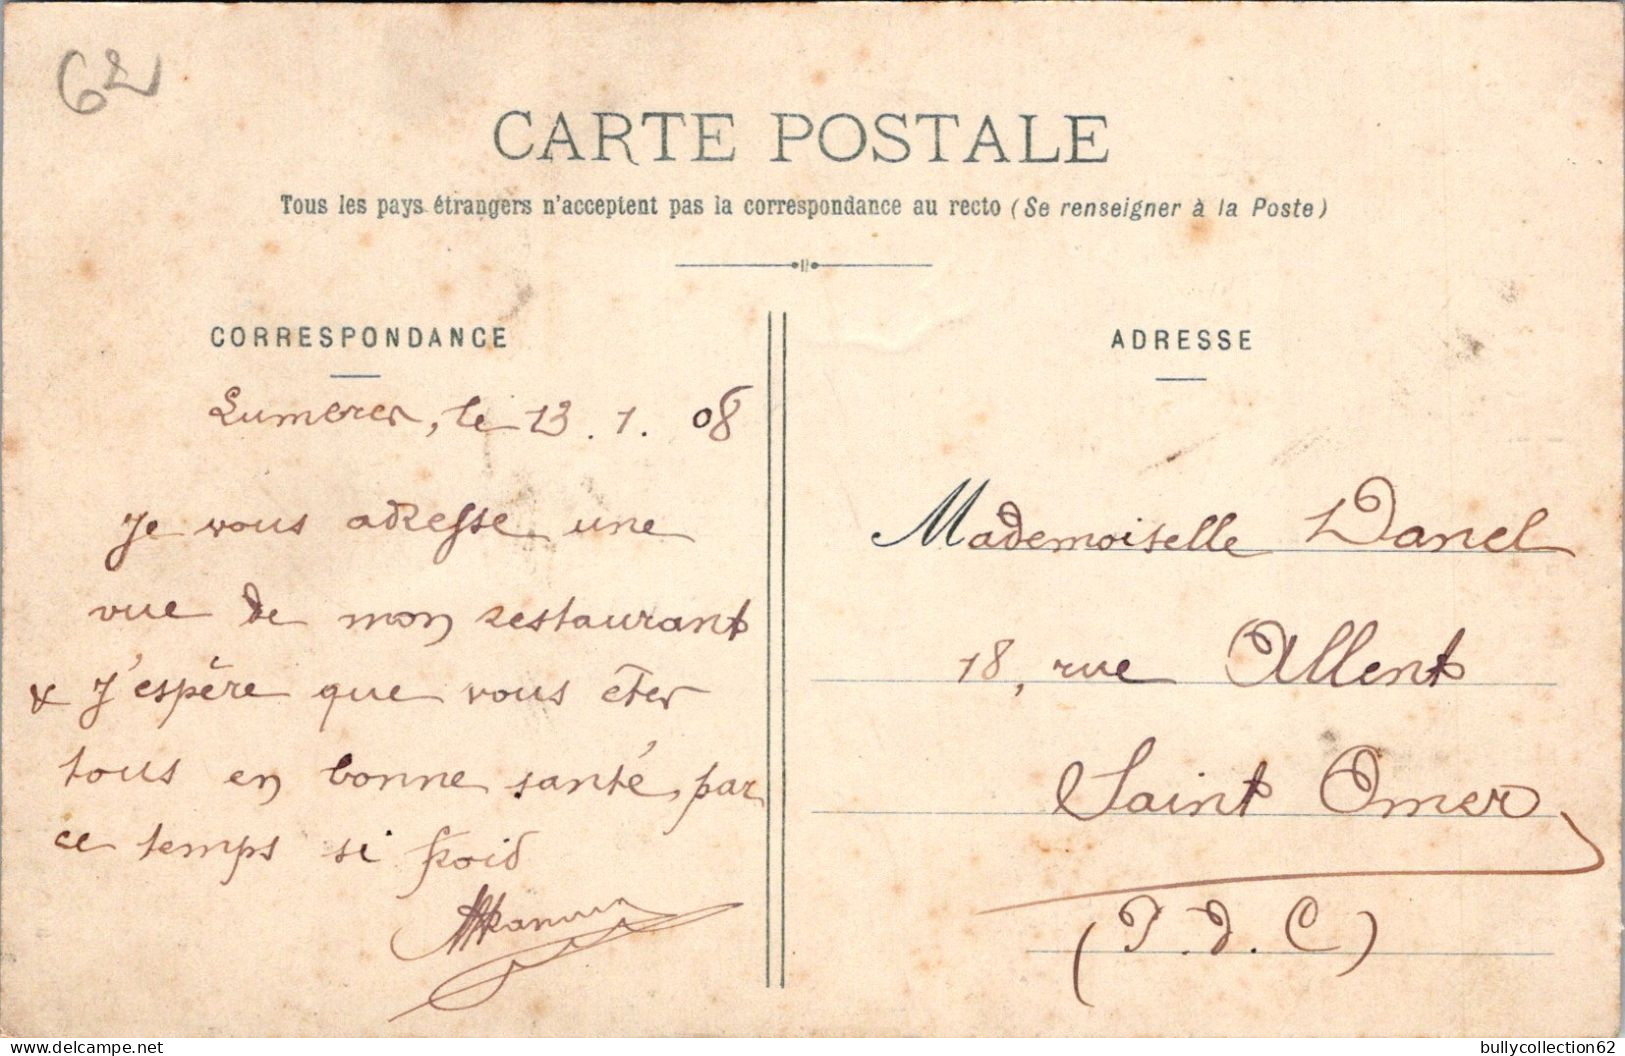 62
CARTE POSTALE
Tous les pays étrangers n'acceptent pas la correspondance au recto (Se renseigner à la Poste)
CORRESPONDANCE
Lumbres, le 13.1.08
Je vous adresse une
vue de mon restaurant
& j'espère que vous êtes
tous en bonne santé, par
ce temps si froid
ADRESSE
Mademoiselle Danel
18, rue Allent
Saint Omer
(P.d.C)
delcampe.net
bullycollection62